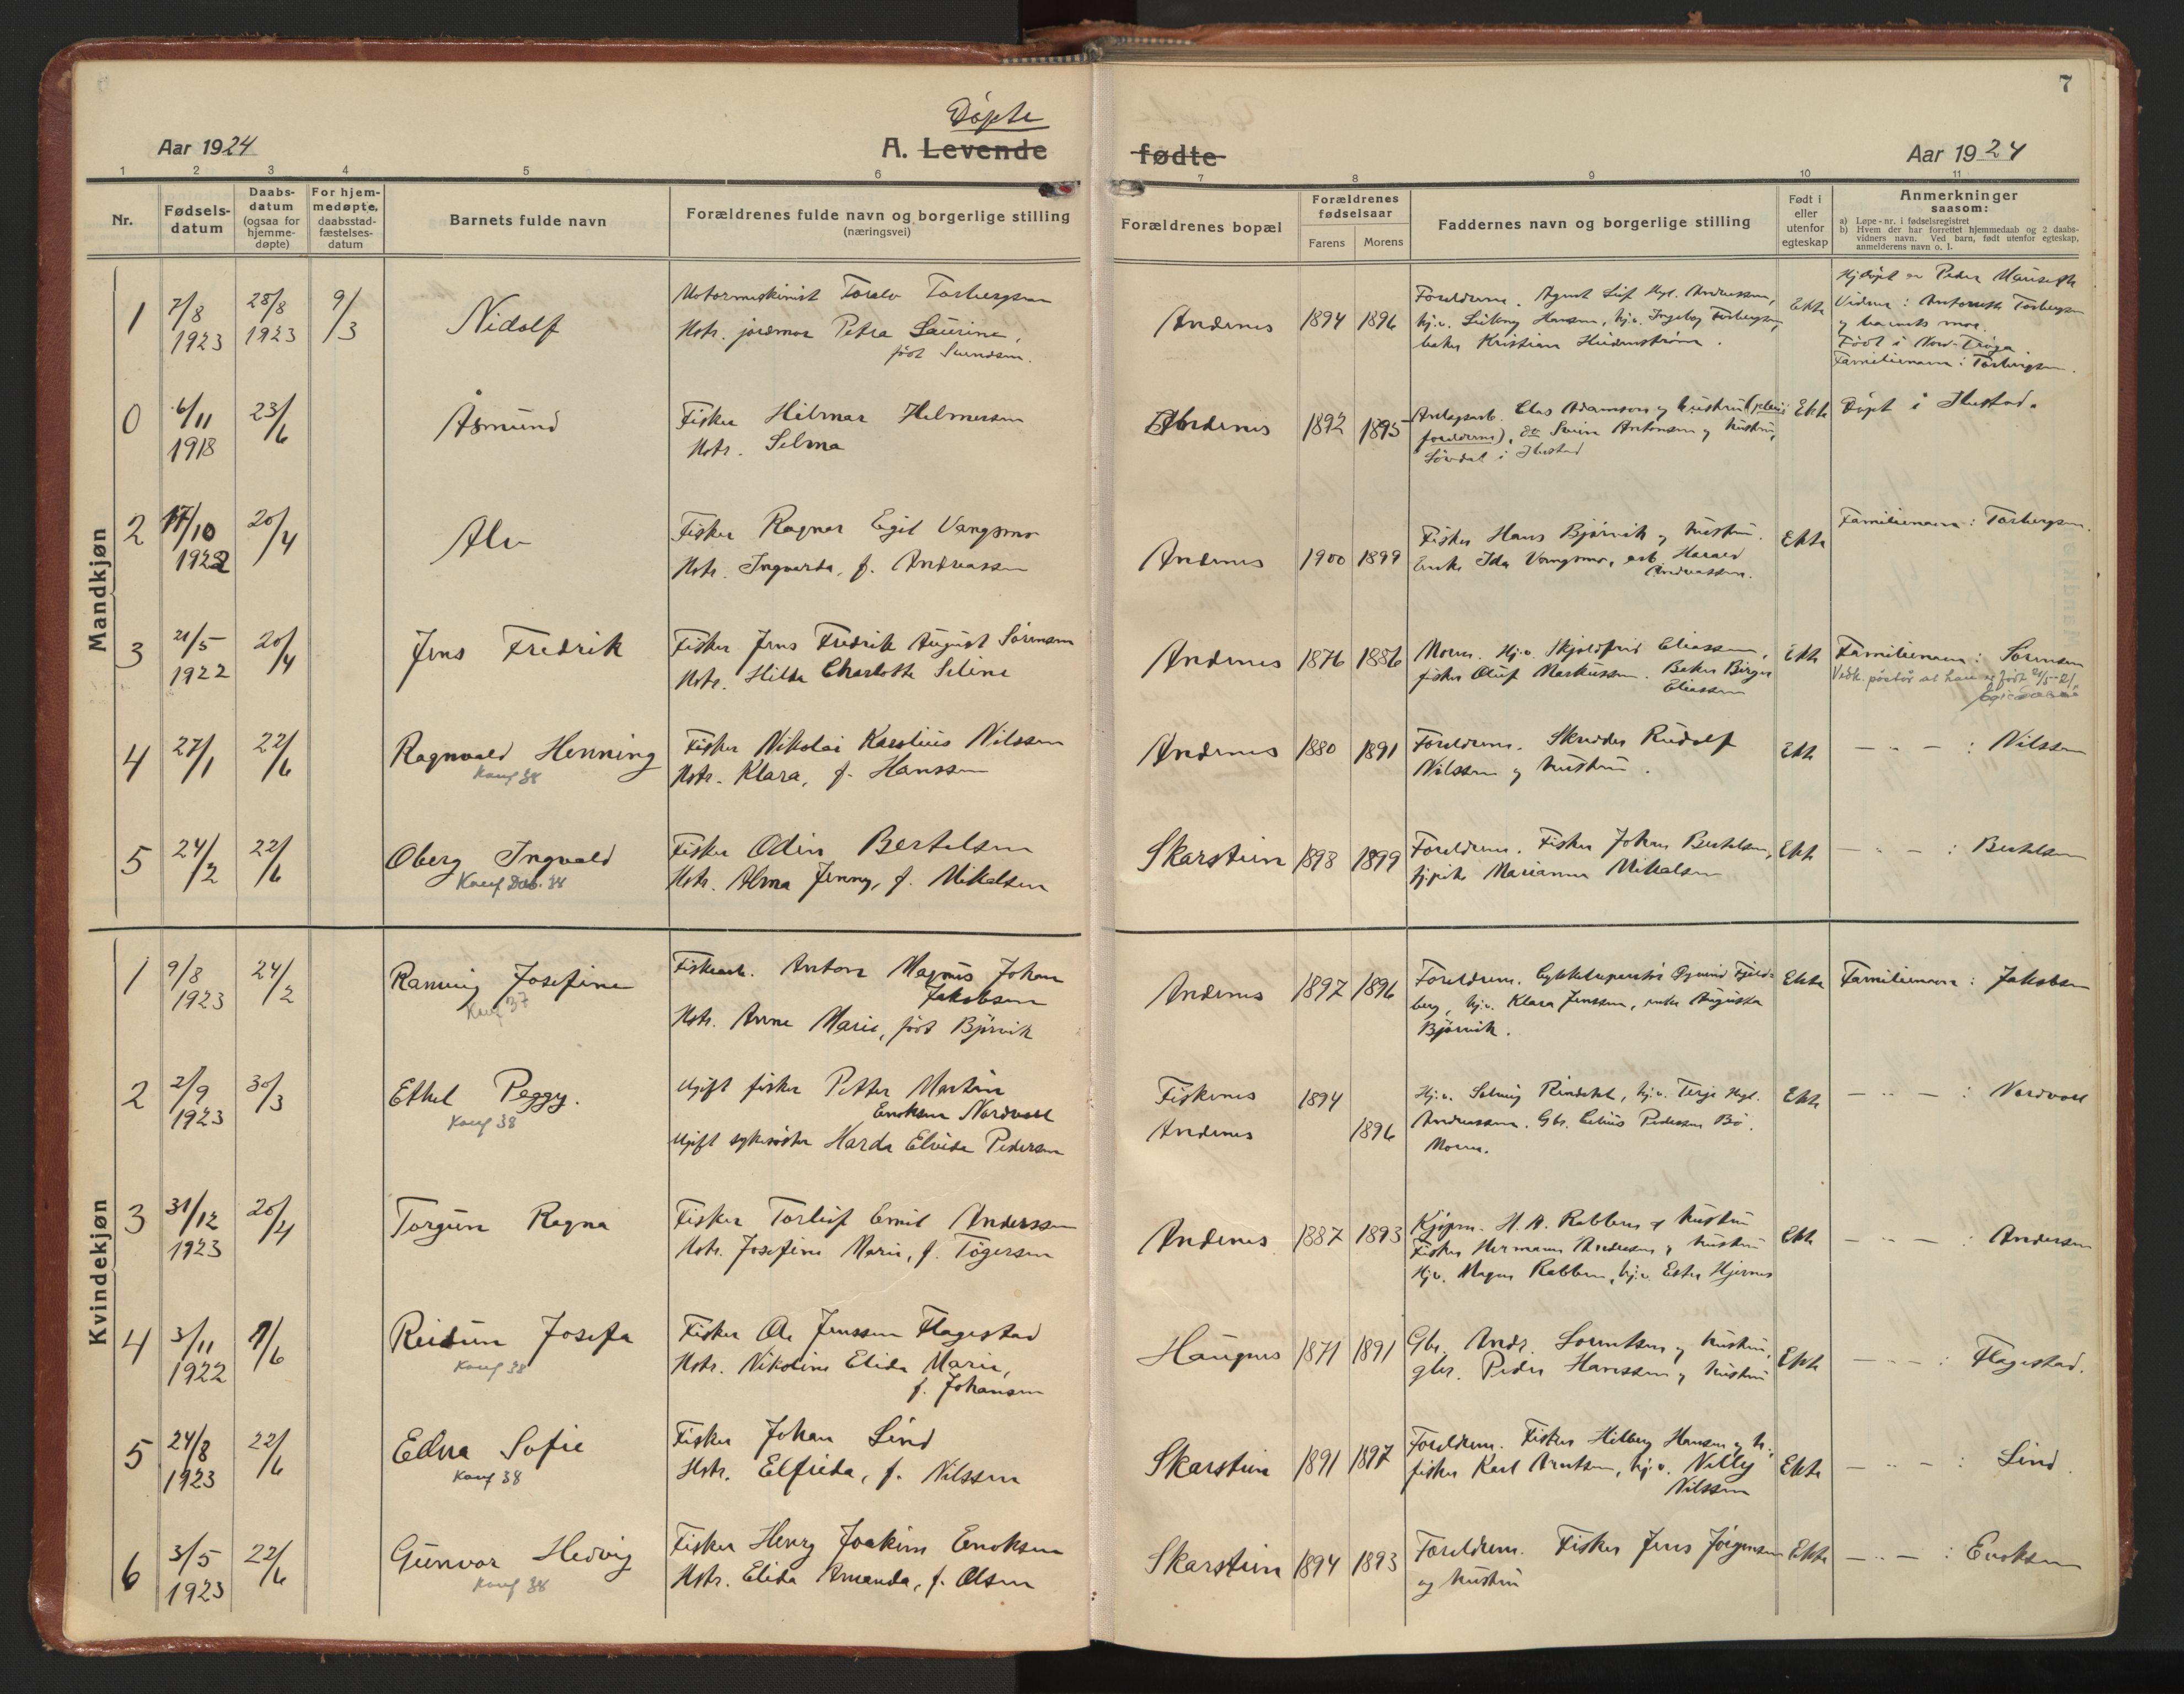 7
Døpte
Aar 1924
A. Levende
fødte
Aar 1924
1 2 3 4 5 6 7 8 9 10 11
Nr.
Fødsels-
datum
Daabs-
datum
(ogsaa for
hjemme-
døpte)
For hjem-
medøpte,
daabsstad-
fæstelses-
datum
Barnets fulde navn
Forældrenes fulde navn og borgerlige stilling
(næringsvei)
Forældrenes bopæl
Forældrenes
fødselsaar
Farens Morens
Faddernes navn og borgerlige stilling
Født i
eller
utenfor
egteskap
Anmerkninger
saasom:
a) Løpe-nr. i fødselsregistret
b) Hvem der har forrettet hjemmedaab og 2 daabs-
vidners navn. Ved barn, født utenfor egteskap,
anmelderens navn o. l.
Mandkjøn
1
7/8
1923
28/8
1923
9/3
Nidolf
Motormaskinist Toralv Torbergsen
Hstr. jordmor Petra Laurine,
født Svendsen.
Andenes
1894 1896
Foreldrene. Agent Leif Andreassen,
hj.v. Hansen, hj.v. Ingeborg Torbergsen,
baker Kristian
Ekte
Hj.døpt av Peder
Vidner: Torbergsen
og barnets mor.
Født i
Familienavn: Torbergsen.
0
6/11
1918
23/6
Åsmund
Fisker Hilmar Helmersen
Hstr. Selma
Andenes
1892 1895
Anlegsarb. Elas Adamsen og hustru (pleie
foreldrene), do Svein Antonsen og hustru,
i Hustad
Ekte
Døpt i Hustad.
2
17/10
1922
20/4
Alv
Fisker Ragnar Egil Vangsmo
Hstr. Ingvarda, f. Andreassen
Andenes
1900 1899
Fisker Hans Bjørvik og hustru.
Enke Ida Vangsmo, arb. Harald
Andreassen.
Ekte
Familienavn: Torbergsen.
3
21/5
1922
20/4
Jens Fredrik
Fisker Jens Fredrik August Sørensen
Hstr. Hilda Charlotte Seline
Andenes
1876 1886
Moren. Hj.v. Skjoldfrid Eliassen,
fisker Oluf Markussen. Baker Birger
Eliassen
Ekte
Familienavn: Sørensen
Vedk. påstår at han er født 21/5-21
4
27/1
22/6
Ragnvald Henning
Konf 38
Fisker Nikolai Karolius Nilssen
Hstr. Klara, f. Hanssen
Andenes
1880 1891
Foreldrene. Skredder Rudolf
Nilssen og hustru.
Ekte
— " — : Nilssen
5
24/2
22/6
Oberg Ingvald
Konf 38
Fisker Odin Bertelsen
Hstr. Alma Jenny, f. Mikalsen
Skarstein
1898 1899
Foreldrene. Fisker Johan Bertelsen,
hj.pike Marianne Mikalsen
Ekte
— " — : Bertelsen
Kvindekjøn
1
9/8
1923
24/2
Ranveig Josefine
Konf 37
Fiskearb. Anton Magnus Johan
Jakobsen
Hstr. Anne Marie, født Bjørvik
Andenes
1897 1896
Foreldrene. Øyvind Fjeld-
berg, hj.v. Klara Jenssen, enke Augusta
Bjørvik.
Ekte
Familienavn: Jakobsen
2
2/9
1923
30/3
Ethel Peggy.
Konf 38
Ugift fisker Petter Martin
Enoksen Nordvoll
Ugift sykesøster Harda Elvida Pedersen
Fiskenes
Andenes
1894
1896
Hj.v. Solveig Rindahl, hj.v. Terje
Andreassen. Gbr. Pedersen Bø.
Moren.
Ekte
— " — : Nordvoll
3
31/12
1923
20/4
Torgun Ragna
Fisker Torleif Emil Anderssen
Hstr. Josefine Marie, f. Tøgersen
Andenes
1887 1893
Kjøpm. H. A. Robben og hustru
Fisker Hermann Andersen og hustru
Hj.v. Magna Robben, hj.v. Ester Hjernes
Ekte
— " — : Andersen
4
3/11
1922
9/6
Reidun Josefa
Konf 38
Fisker Ole Jenssen Flagestad
Hstr. Nikoline Elida Marie,
f. Johansen
Haugnes
1871 1891
Gbr. Andr. Lorentsen og hustru,
gbr. Peder Hanssen og hustru
Ekte
— " — : Flagestad.
5
24/8
1923
22/6
Edna Sofie
Konf 38
Fisker Johan Lind
Hstr. Elfrida, f. Nilssen
Skarstein
1891 1897
Foreldrene. Fisker Hilberg Hansen og h.,
fisker Karl Arntsen, hj.v. Nelly
Nilssen
Ekte
— " — : Lind
6
3/5
1923
22/6
Gunvor Hedvig
Konf 38
Fisker Henry Joakim Enoksen
Hstr. Elida Amanda, f. Olsen
Skarstein
1894 1893
Foreldrene. Fisker Jens Jörgensen
og hustru
Ekte
— " — : Enoksen